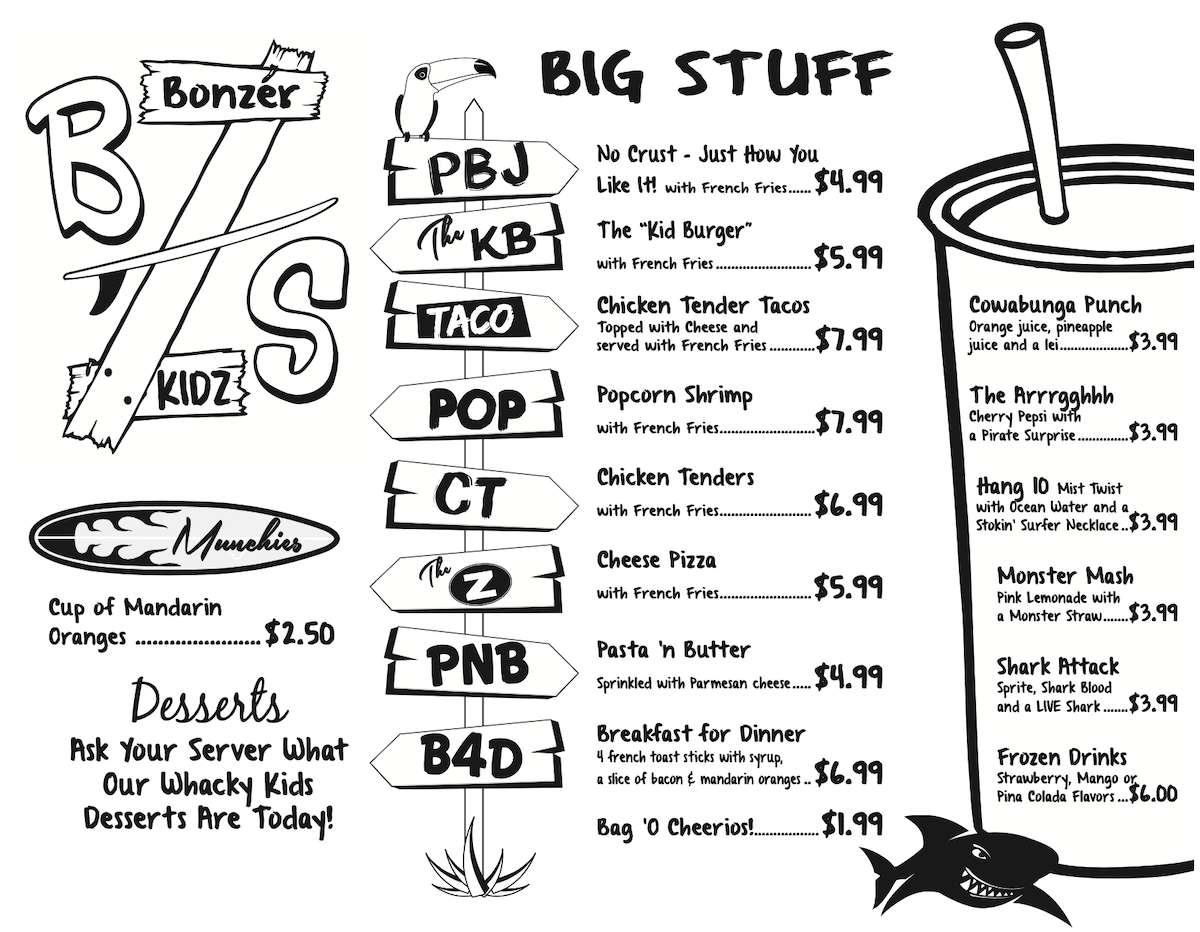 Bonzer
B
S
KIDZ
Munchies
Cup of Mandarin
Oranges ...................... $2.50
Desserts
Ask Your Server What
Our Whacky Kids
Desserts Are Today!
BIG STUFF
PBJ
No Crust - Just How You
Like It! with French Fries...... $4.99
The KB
The “Kid Burger”
with French Fries......................... $5.99
TACO
Chicken Tender Tacos
Topped with Cheese and
served with French Fries ............ $7.99
POP
Popcorn Shrimp
with French Fries......................... $7.99
CT
Chicken Tenders
with French Fries......................... $6.99
The Z
Cheese Pizza
with French Fries......................... $5.99
PNB
Pasta 'n Butter
Sprinkled with Parmesan cheese..... $4.99
B4D
Breakfast for Dinner
4 french toast sticks with syrup,
a slice of bacon & mandarin oranges .. $6.99
Bag 'O Cheerios!................. $1.99
Cowabunga Punch
Orange juice, pineapple
juice and a lei...................$3.99
The Arrrgghhh
Cherry Pepsi with
a Pirate Surprise..............$3.99
Hang 10 Mist Twist
with Ocean Water and a
Stokin' Surfer Necklace..$3.99
Monster Mash
Pink Lemonade with
a Monster Straw.......$3.99
Shark Attack
Sprite, Shark Blood
and a LIVE Shark .......$3.99
Frozen Drinks
Strawberry, Mango or
Pina Colada Flavors ...$6.00